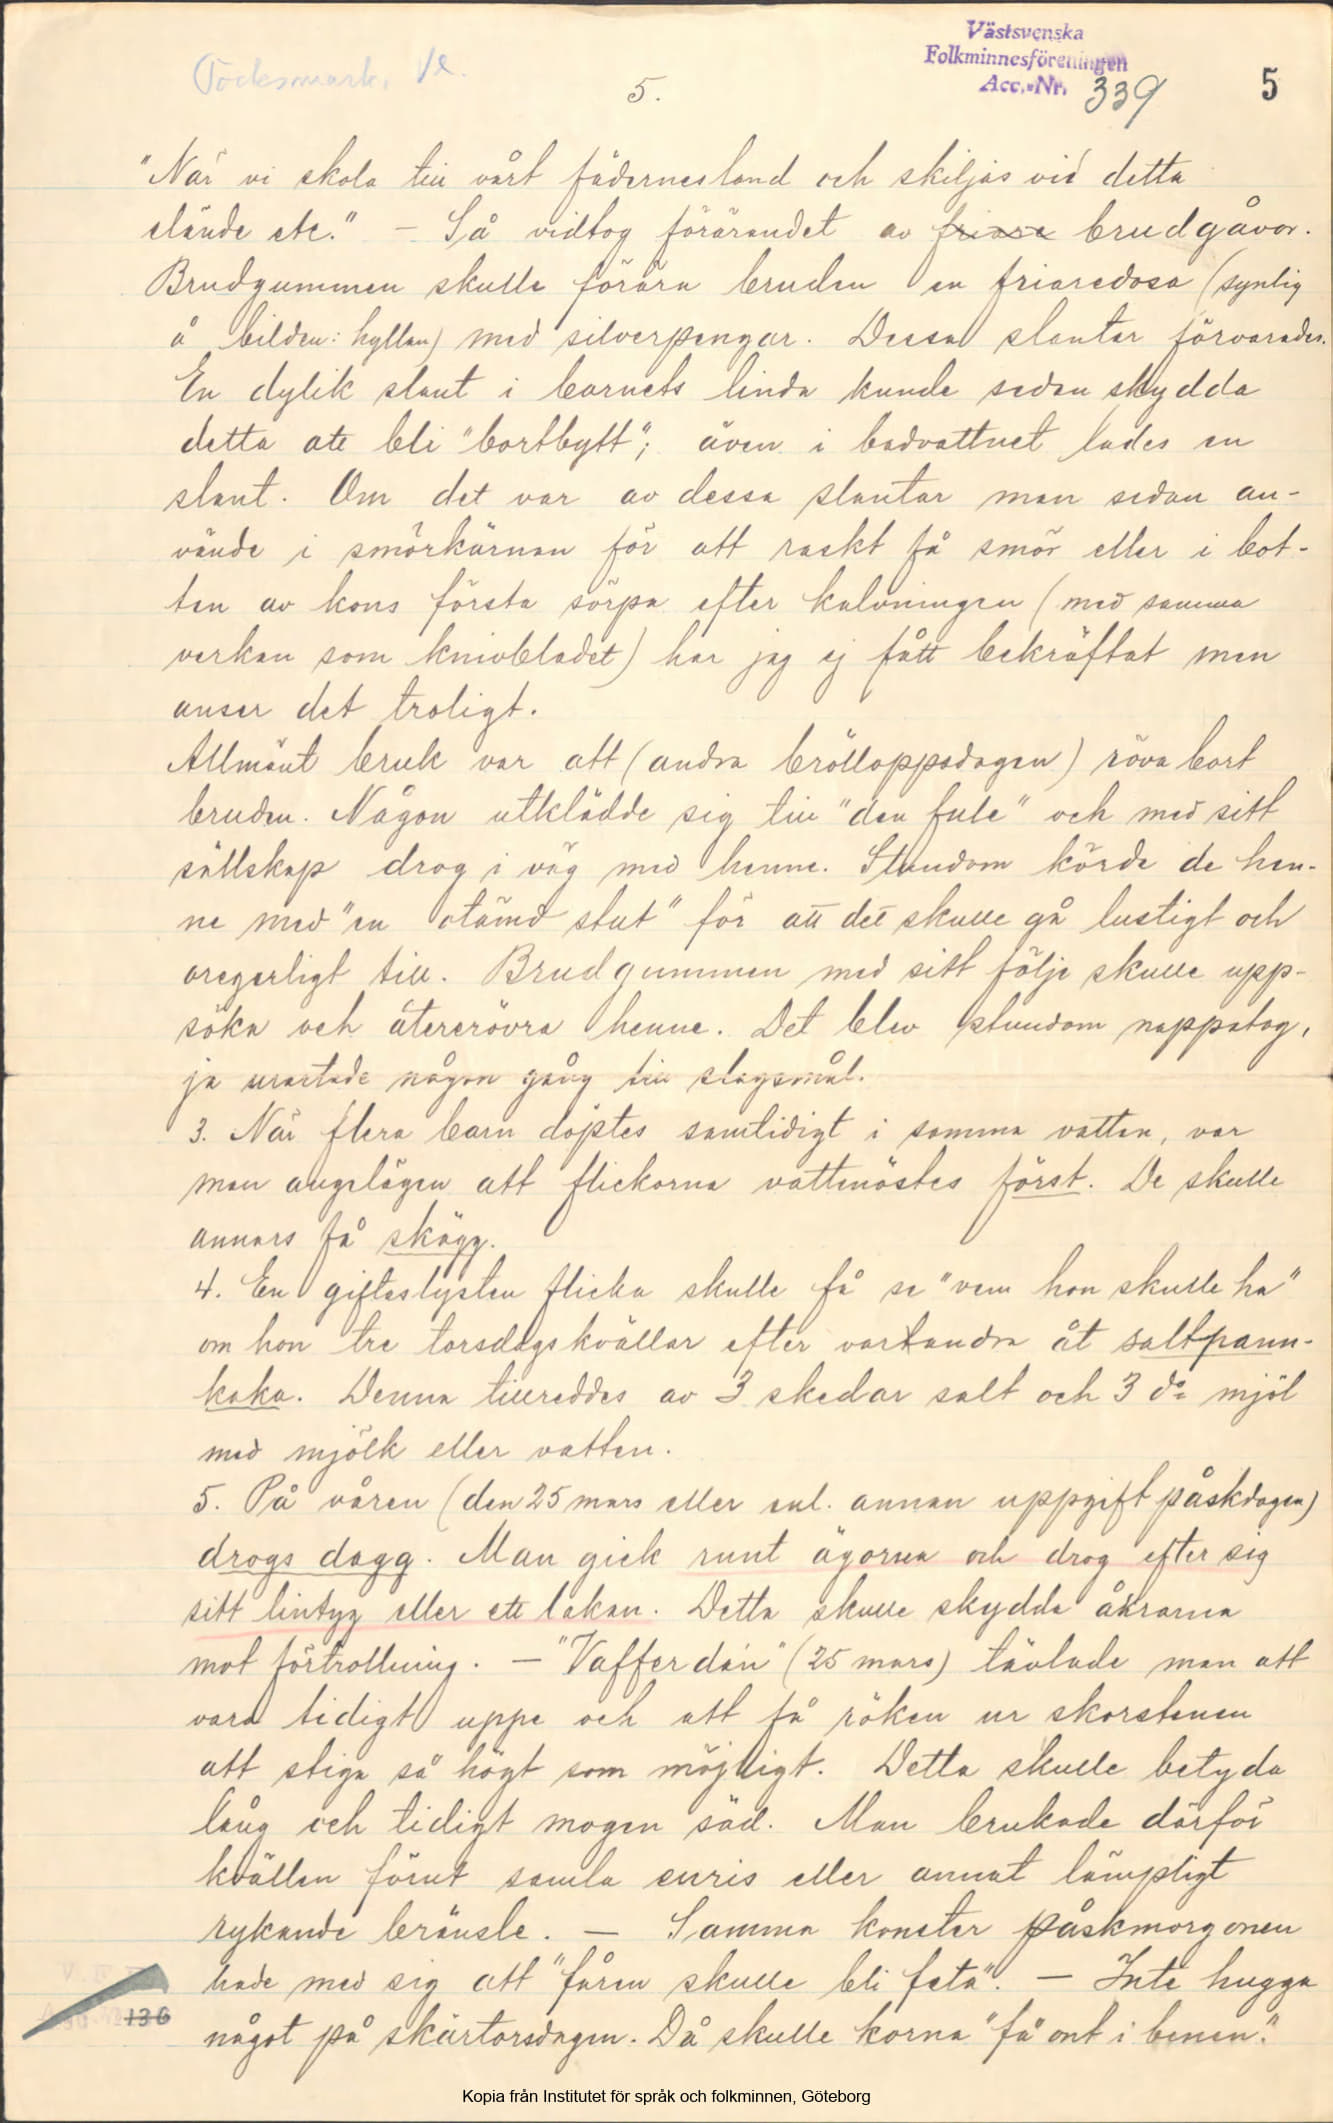 Töcksmark, Vr.
5.
Västsvenska
Folkminnesföreningen
Acc.-Nr. 339
5
"När vi skola till vårt fädernesland och skiljas vid detta
elände etc." – Så vidtog förärandet av friare brudgåvor.
Brudgummen skulle förära bruden en friaredosa (synlig
å bilden: hyllan) med silverpengar. Dessa slantar förvarades.
En dylik slant i barnets linda kunde sedan skydda
detta att bli "bortbytt"; även i badvattnet lades en
slant. Om det var av dessa slantar man sedan an-
vände i smörkärnan för att raskt få smör eller i bot-
ten av kons första sörpa efter kalvningen (med samma
verkan som knivbladet) har jag ej fått bekräftat men
anser det troligt.
Allmänt bruk var att (andra bröllopsdagen) röva bort
bruden. Någon utklädde sig till "den fule" och med sitt
sällskap drog i väg med henne. Stundom körde de hen-
ne med "en otämd stut" för att det skulle gå lustigt och
oregerligt till. Brudgummen med sitt följe skulle upp-
söka och återerövra henne. Det blev stundom nappatag,
ja urartade någon gång till slagsmål.
3. När flera barn döptes samtidigt i samma vatten, var
man angelägen att flickorna vattenöstes först. De skulle
annars få skägg.
4. En gifteslysten flicka skulle få se "vem hon skulle ha"
om hon tre torsdagskvällar efter vartandra åt saltpann-
kaka. Denna tillreddes av 3 skedar salt och 3 do mjöl
med mjölk eller vatten.
5. På våren (den 25 mars eller enl. annan uppgift påskdagen)
drogs dagg. Man gick runt ägorna och drog efter sig
sitt lintyg eller ett lakan. Detta skulle skydda åkrarna
mot förtrollning. – "Vafferdan" (25 mars) tävlade man att
vara tidigt uppe och att få röken ur skorstenen
att stiga så högt som möjligt. Detta skulle betyda
lång och tidigt mogen säd. Man brukade därför
kvällen förut samla enris eller annat lämpligt
rykande bränsle. – Samma konster påskmorgonen
hade med sig att "fåren skulle bli feta". – Inte hugga
136
något på skärtorsdagen. Då skulle korna "få ont i benen."
Kopia från Institutet för språk och folkminnen, Göteborg